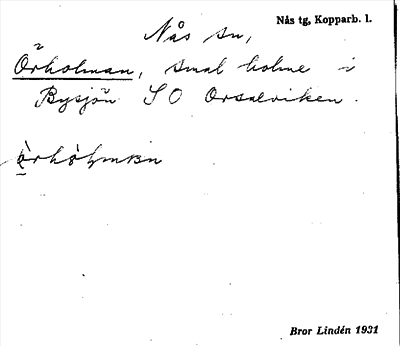 Nås sn,
Nås tg, Kopparb. l.
Örholman, smal holme i
Bysjön SO Orsalviken.
Bror Lindén 1931